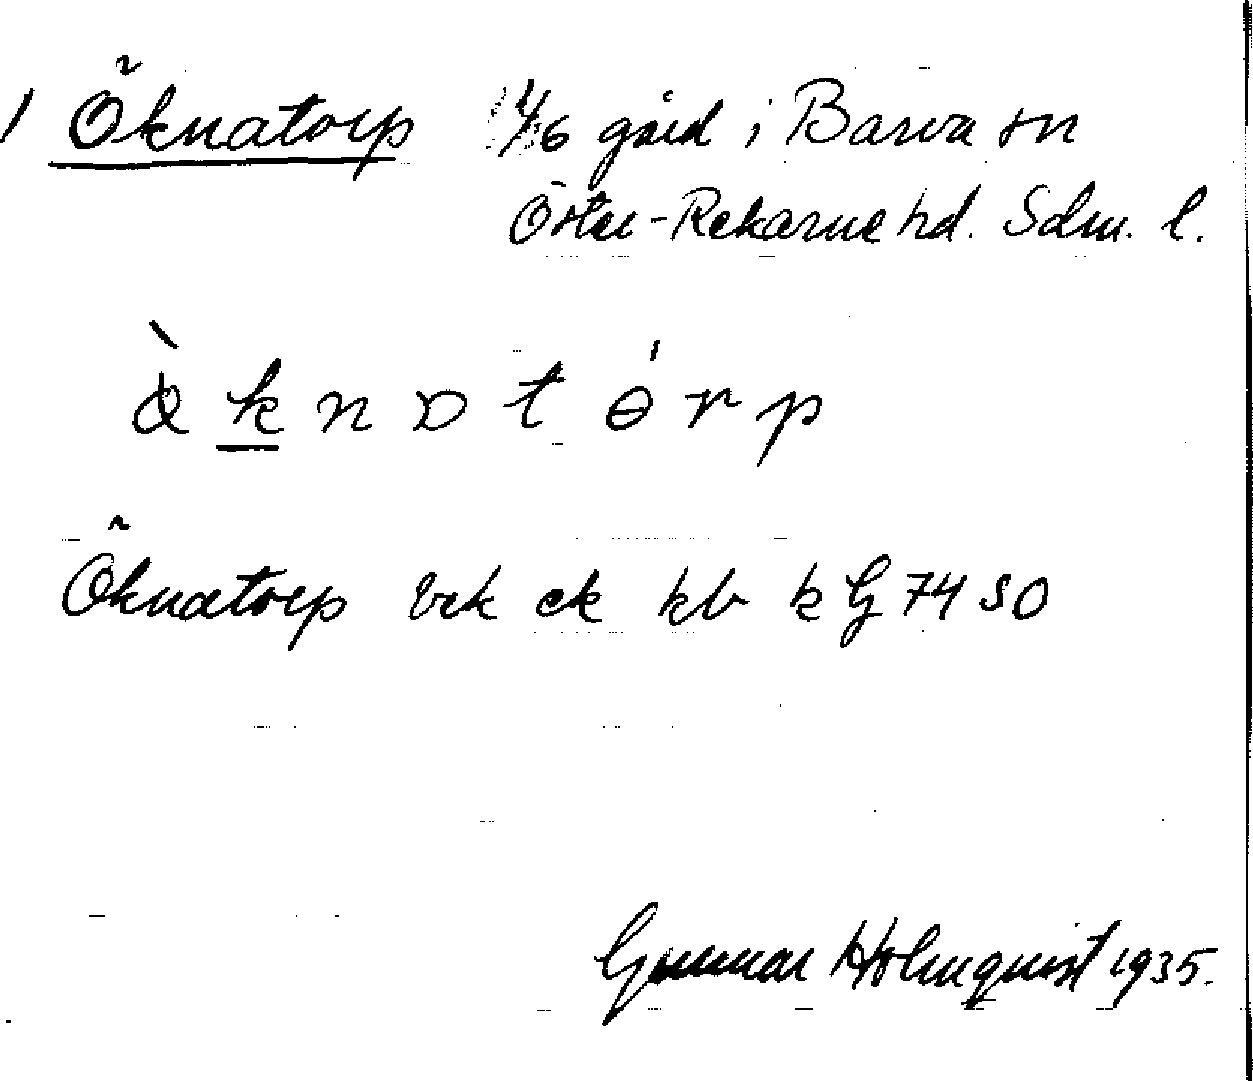 1 Öknatorp 4/6 gård i Barva sn
Öster-Rekarne hd. Sdm. l.
Öknatorp brk ek kb k G 74 SO
Gunnar Holmquist 1935.